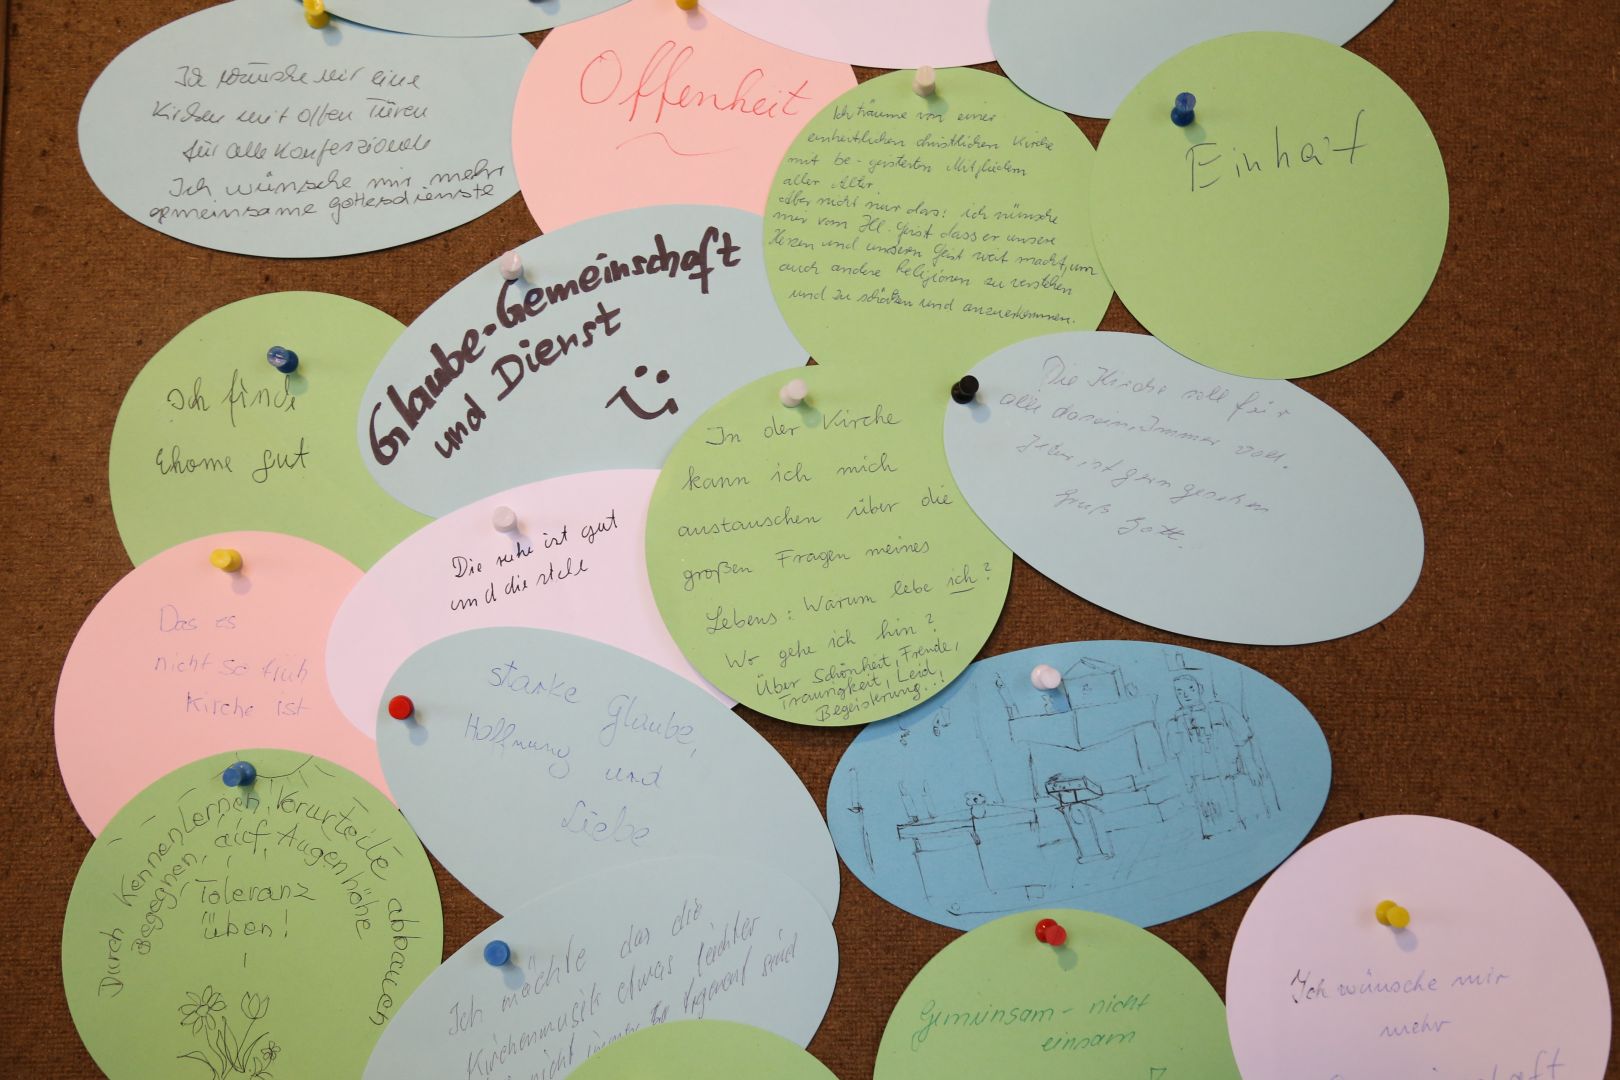 Ich wünsche mir eine
Kirchen mit offen Türen
für alle Konfessionen
Ich wünsche mir mehr
gemeinsame gottesdienste
Offenheit
Ich träume von einer
einheitlichen christlichen Kirche
mit be-geisterten Mitgliedern
aller Alter.
Aber nicht nur das: ich wünsche
mir vom Hl. Geist dass er unsere
Herzen und unseren Geist weit macht, um
auch andere Religionen zu verstehen
und zu schätzen und anzuerkennen.
Einheit
Glaube-Gemeinschaft
und Dienst
Ich finde
gut
In der Kirche
kann ich mich
austauschen über die
großen Fragen meines
Lebens: Warum lebe ich?
Wo gehe ich hin?
Über Schönheit, Freude,
Traurigkeit, Leid,
Begeisterung...!
Die Kirche soll für
alle dasein, Immer voll.
Jeder ist gern gesehen
Gruß Gott.
Die ruhe ist gut
und die stele
Das es
nicht so früh
Kirche ist
starke Glaube,
Hoffnung und
Liebe
Durch Kennenlernen Vorurteile abbauen
Begegnen, auf Augenhöhe
Toleranz
üben!
Ich möchte das die
Kirchenmusik etwas leichter
nicht immer
Gemeinsam - nicht
einsam
Ich wünsche mir
mehr